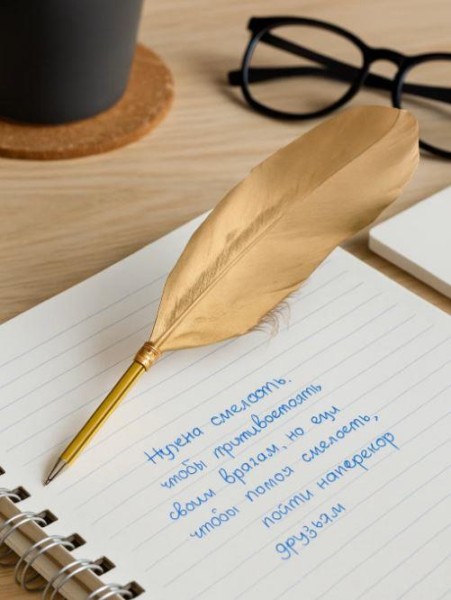 Нужна смелость,
чтобы противостоять
своим врагам, но ещи
чтобы помоя смелость,
пойти наперекор
друзьям